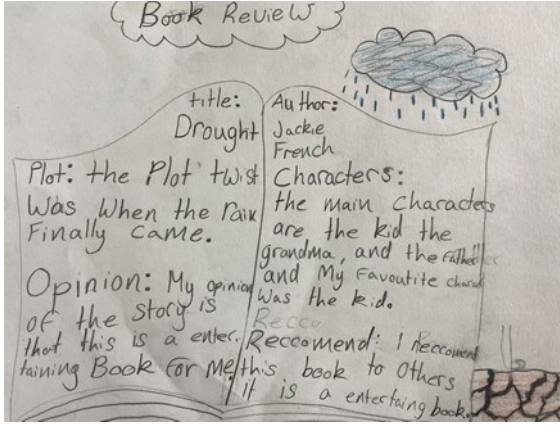 Book Review
title:
Drought
Plot: the Plot twist
Was When the rain
Finally came.
Opinion: My opinion
of the Story is
that this is a enter.
taining Book For Me!
Author:
Jackie
French
Characters:
the main characters
are the kid the
grandma, and the Father
and My Favoutite charad
Was the kid.
Recco
Reccomend: I Reccomend
this book to Others
it is a entertaing book.